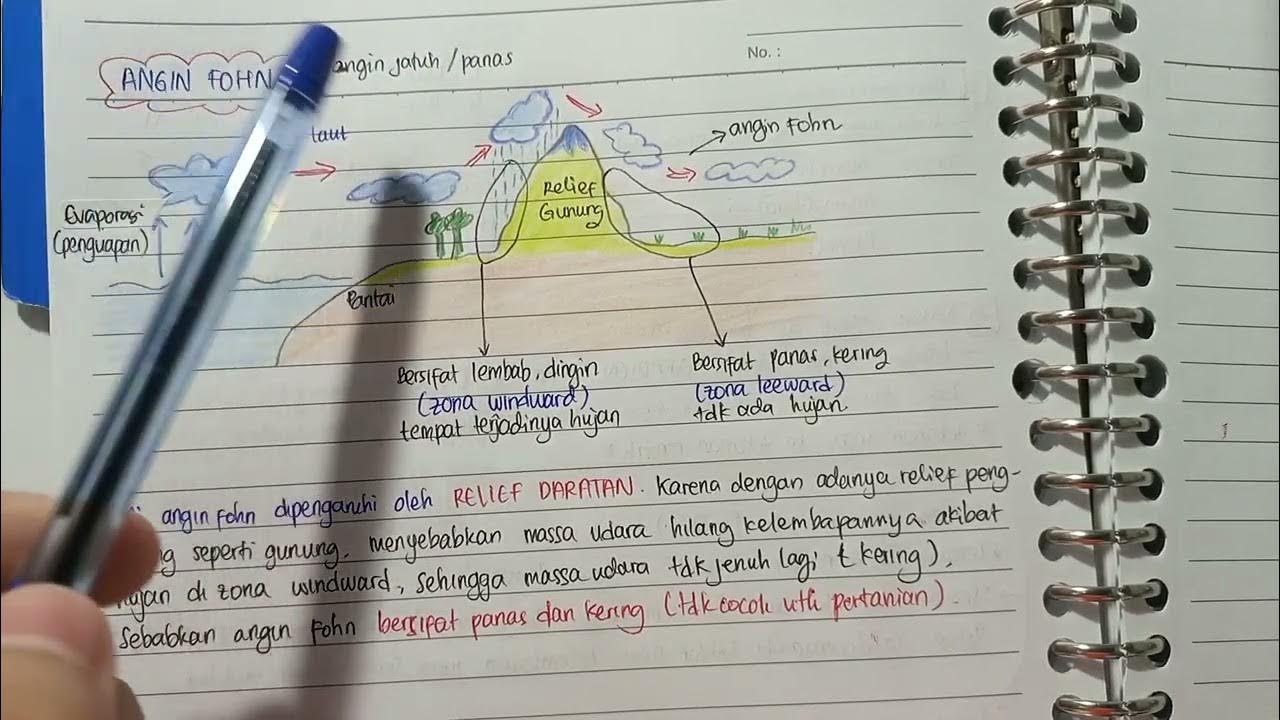 No. :
ANGIN FOHN angin jatuh / panas
laut
angin fohn
Relief
Gunung
Evaporasi
(penguapan)
Pantai
Bersifat lembab, dingin
(zona windward)
tempat terjadinya hujan
Bersifat panas, kering
(zona leeward)
tdk ada hujan
angin fohn dipengaruhi oleh RELIEF DARATAN. Karena dengan adanya relief peng-
seperti gunung, menyebabkan massa udara hilang kelembapannya akibat
di zona windward, sehingga massa udara tdk jenuh lagi (kering).
sebabkan angin fohn bersifat panas dan kering (tdk cocok utk pertanian).